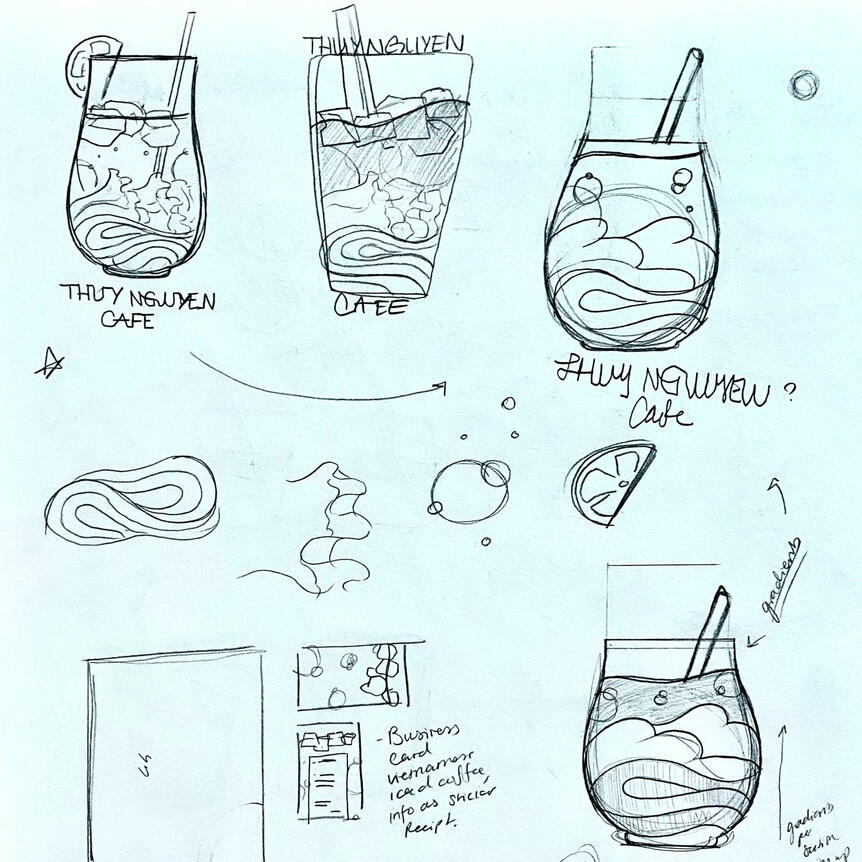 THUY NGUYEN
THUY NGUYEN
CAFE
CAFE
THUY NGUYEN ?
Cafe
gradients
- Business
Card
vietnamese
iced coffee
info as sticker
Recipt.
gradients
per
Section